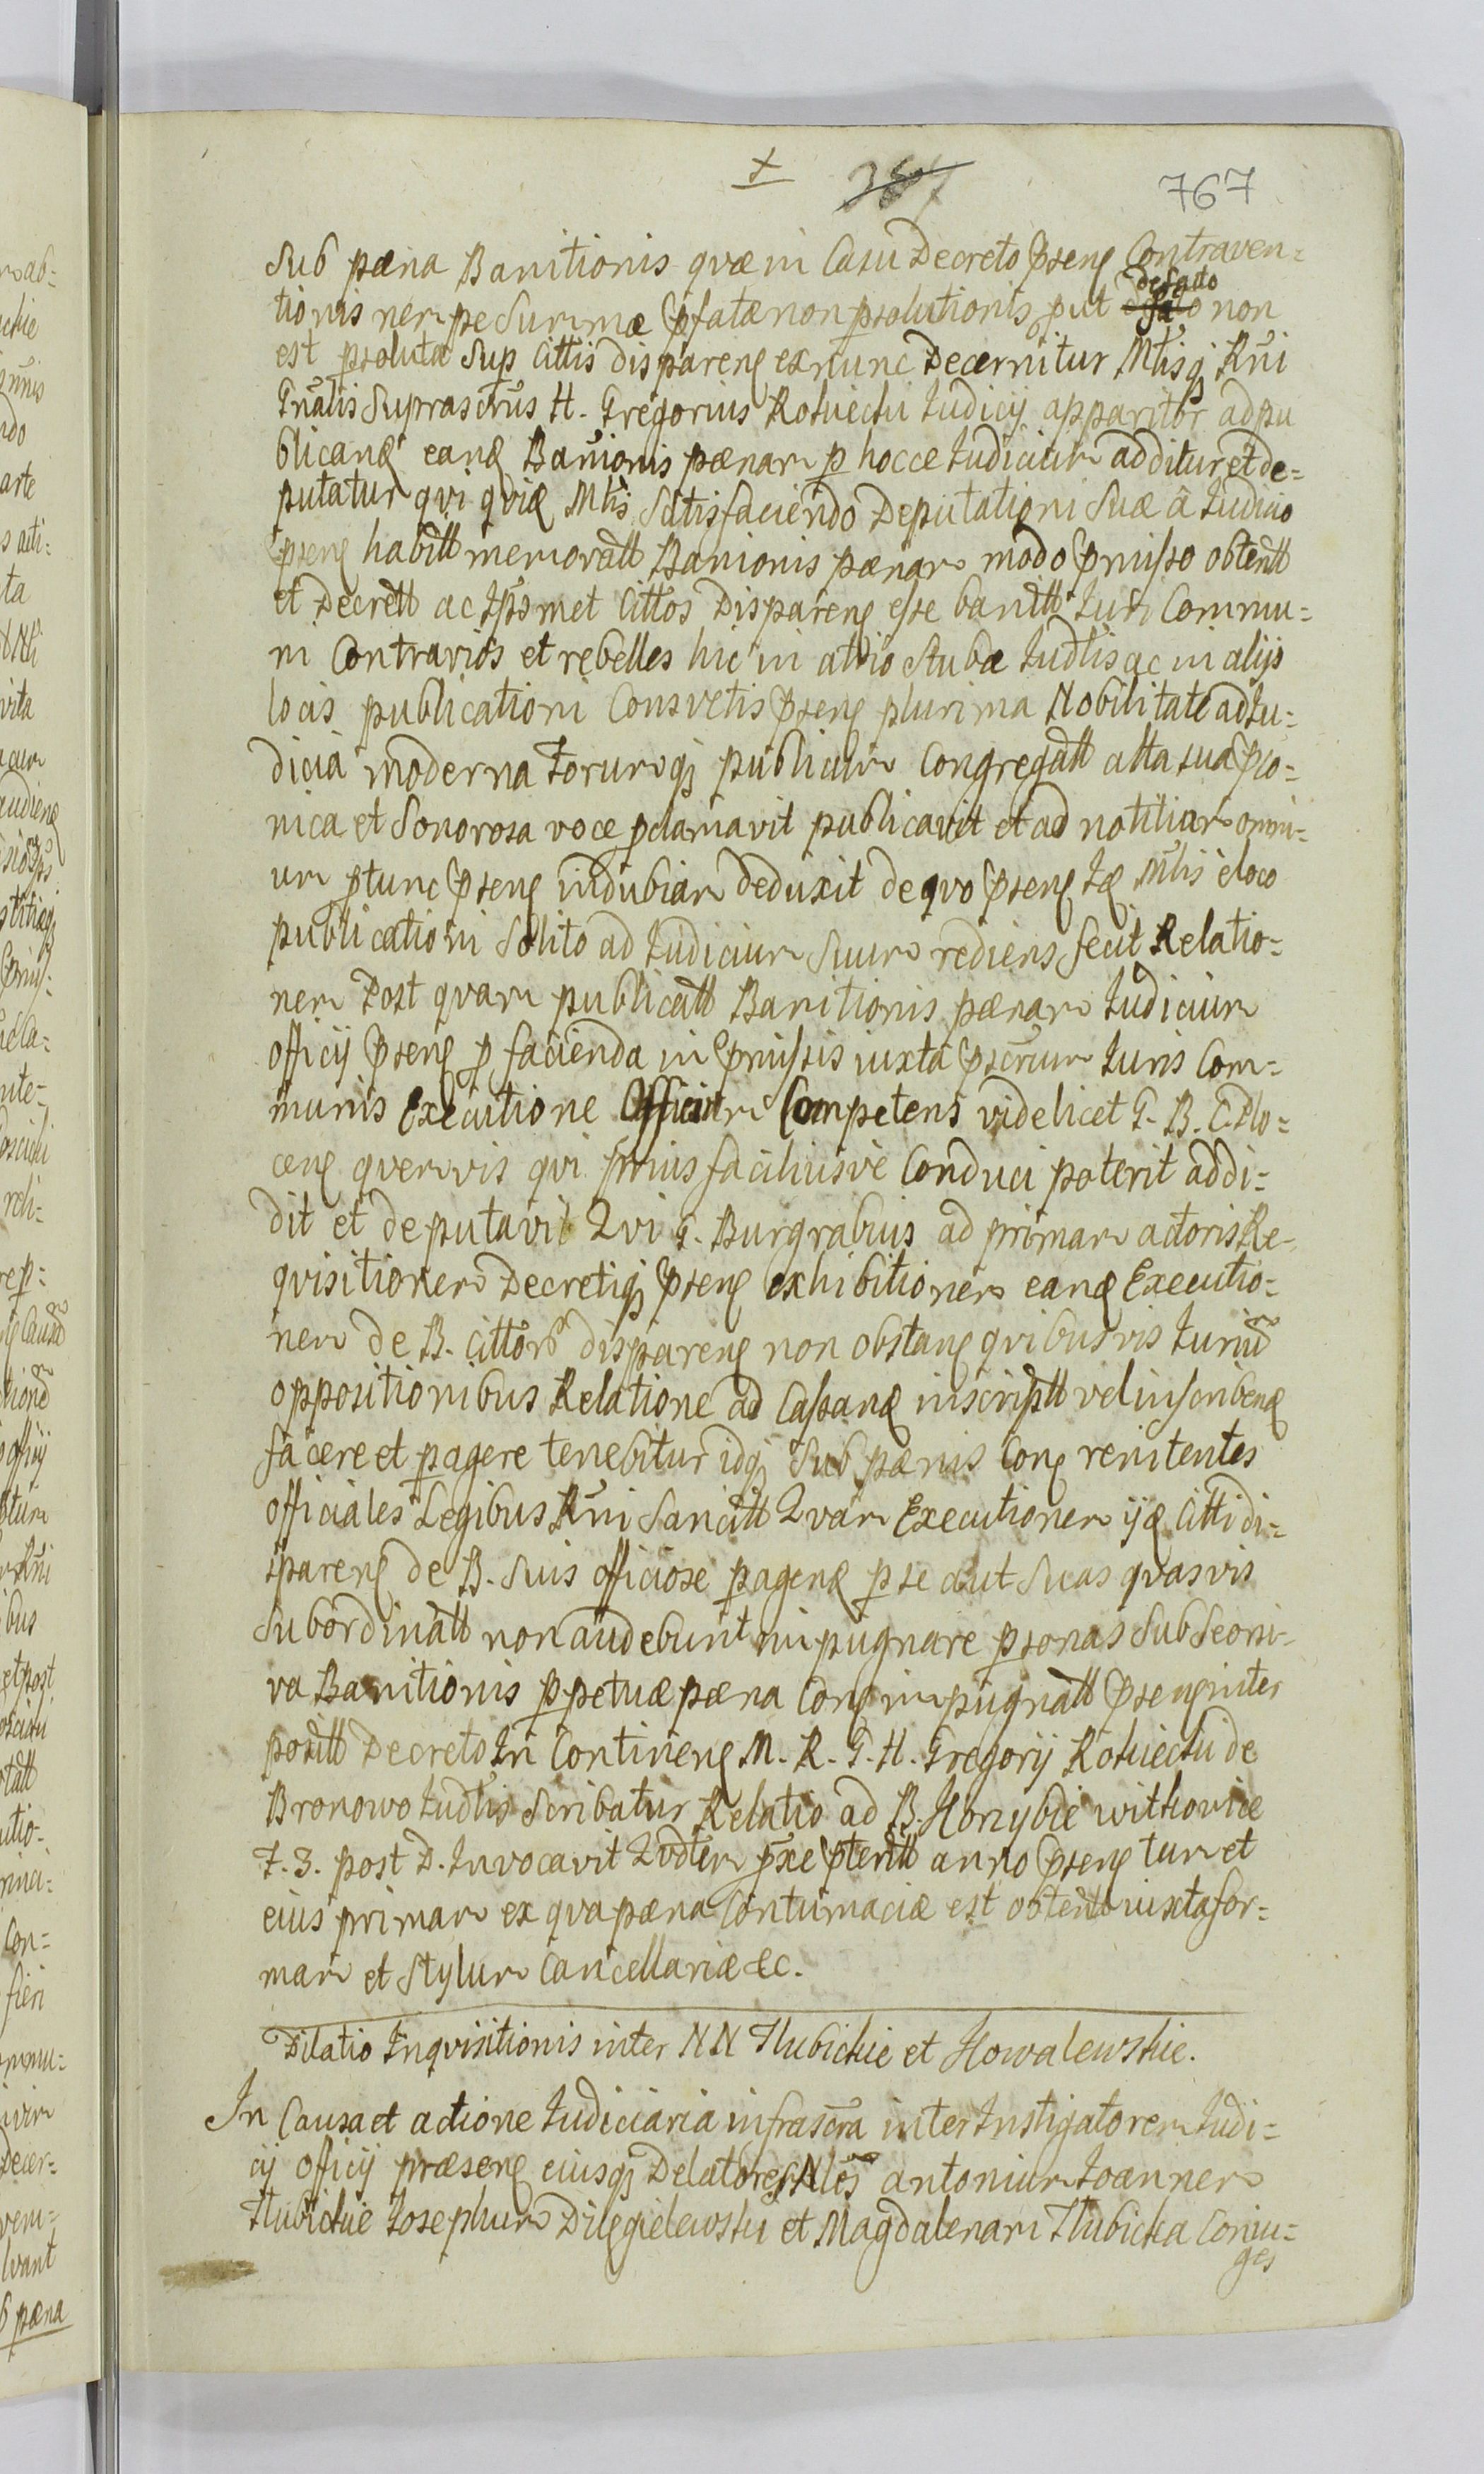 767
Sub pæna Banitionis quæ in Casu Decreto Pseng Contraven=
tionis nempe Summæ Pfatæ non psolutionis put defacto non
est psoluta Sup Cittis dispareng exnunc Decernitur Mtisq Rni
Gnalis Suprascrus H. Gregorius Kotwicki Judicij apparitor ad pu
blicand eand Banionis pænam p hocce Judicium additur et de=
putatur qvi qvid Mtis Satisfaciendo Deputationi Suæ â Judicio
pseng habitt memoratt Banionis pænam modo Pmisso obtentt
et Decrett ac Ipsmet Cittos Dispareng esse banitt Juri Commu=
ni Contrarios et rebelles hic in atrio Stubæ Judtis ac in alijs
locis publicationi Consvetis Pseng plurima Nobilitate ad Ju=
dicia moderna Forumq publicum Congregatt alta sua Pco=
nica et Sonorosa voce pclamavit publicavit et ad notitiam omni=
um ptunc Pseng indubiam deduxit de qvo Pseng Id Mtis è loco
publicationi Solito ad Judicium Suum rediens fecit Relatio=
nem Post qvam publicatt Banitionis pænam Judicium
officij Pseng p facienda in Pmissis iuxta Pscrum Juris Com=
munis Executione Officium Competens videlicet G. B. C. Plo=
ceng qvemvis qvi prius faciliusve Conduci poterit addi=
dit et deputavit Qvi G. Burgrabius ad primam actoris Re=
qvisitionem Decretiq Pseng exhibitionem eand Executio=
nem de B. Cittor dispareng non obstang qvibusvis Juriu
oppositionibus Relatione ad Cassand inscriptt vel inscribend
facere et pagere tenebitur idq Sub pænis Cong renitentes
officiales Legibus Rni Sancitt Qvam Executionem ijd Citti di=
spareng de B. Suis officiose pagend p se aut Suas qvasvis
Subordinatt non audebunt impugnare psonas Sub Seorsi=
va Banitionis ppetuæ pæna Cong impugnatt Pseng inter
positt Decreto In Contineng M. R. G. H. Gregorij Kotwicki de
Bronowo Judtis Scribatur Relatio ad B. Honybie withowice
F. 3. post D. Invocavit Qvdtem pxe Ptentt anno Pseng tum et
eius primam ex qva pæna Contumaciæ est obtenta iuxta for=
mam et Stylum Cancellariæ &c.
Dilatio Inqvisitionis inter NN Hubickie et Kowalewskie.
In Causa et actione Judiciaria infrascra inter Instigatorem Judi=
cij officij præseng eiusq Delatores Nles antonium Joannem
Hubickie Josephum Dilegielewski et Magdalenam Hubicka Coniu=
ges